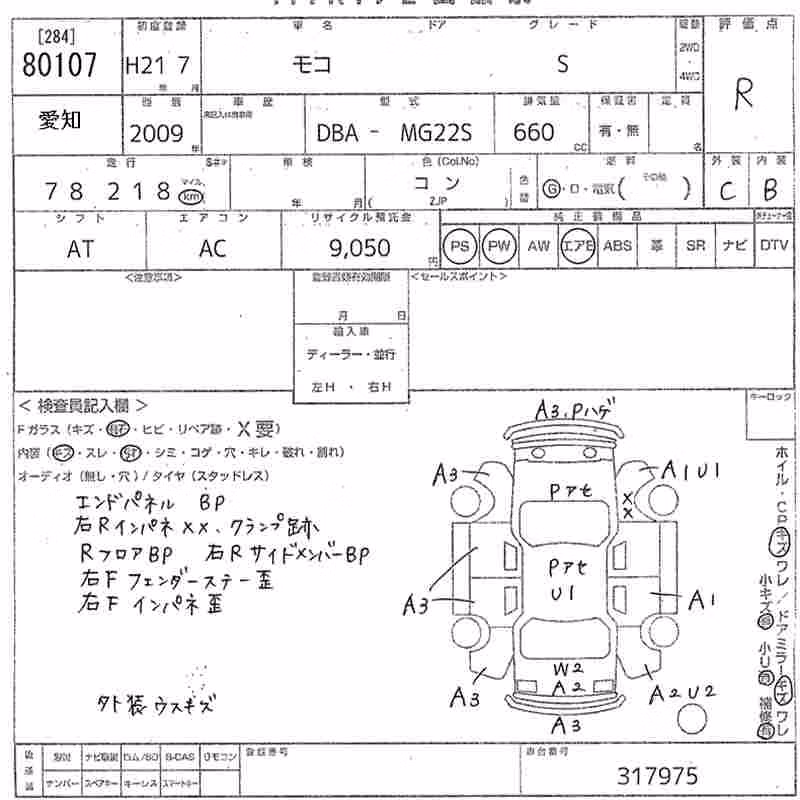 [284]
80107
初度登録
H21 7
年 月
車名 ドア グレード
モコ S
駆動
2WD
・
4WD
評価点
R
愛知
2009
年
車歴
型式
DBA - MG22S
排気量
660
CC
保証書
有・無
定員
名
走行
78 218
マイル
km
車検
年 月
色 (Col.No)
コン
ZJP
色替
燃料
G・D・電気 ( その他 )
外装
C
内装
B
シフト
AT
エアコン
AC
リサイクル預託金
9,050
円
純正装備品
PS PW AW エアB ABS 革 SR ナビ DTV
<注意事項>
月 日
輸入車
ディーラー・並行
左H ・ 右H
<セールスポイント>
キーロック
< 検査員記入欄 >
Fガラス (キズ・ ・ヒビ・リペア跡・X要)
内装 (キズ・スレ・ ・シミ・コゲ・穴・キレ・破れ・割れ)
オーディオ (無し・穴) / タイヤ (スタッドレス)
エンドパネル BP
右Rインパネ XX、クランプ跡
RフロアBP 右RサイドメンバーBP
右F フェンダーステー歪
右F インパネ歪
外装 ウスキズ
A3.Pハゲ
A3
A1U1
Pアセ
X
X
Pアセ
U1
A3
A1
W2
A2
A3
A2U2
A3
ホイル・CPキズワレ/ドアミラーキズワレ
小キズ有 小U有 補修有
後装備
ナビ取説 ロム/SD B-CAS リモコン
ナンバー スペアキー キーレス スマートキー
登録番号
車台番号
317975